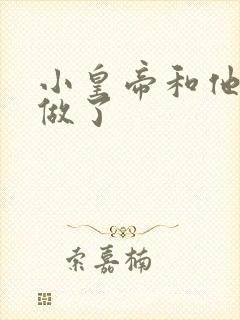 小皇帝和他
做了
索嘉楠